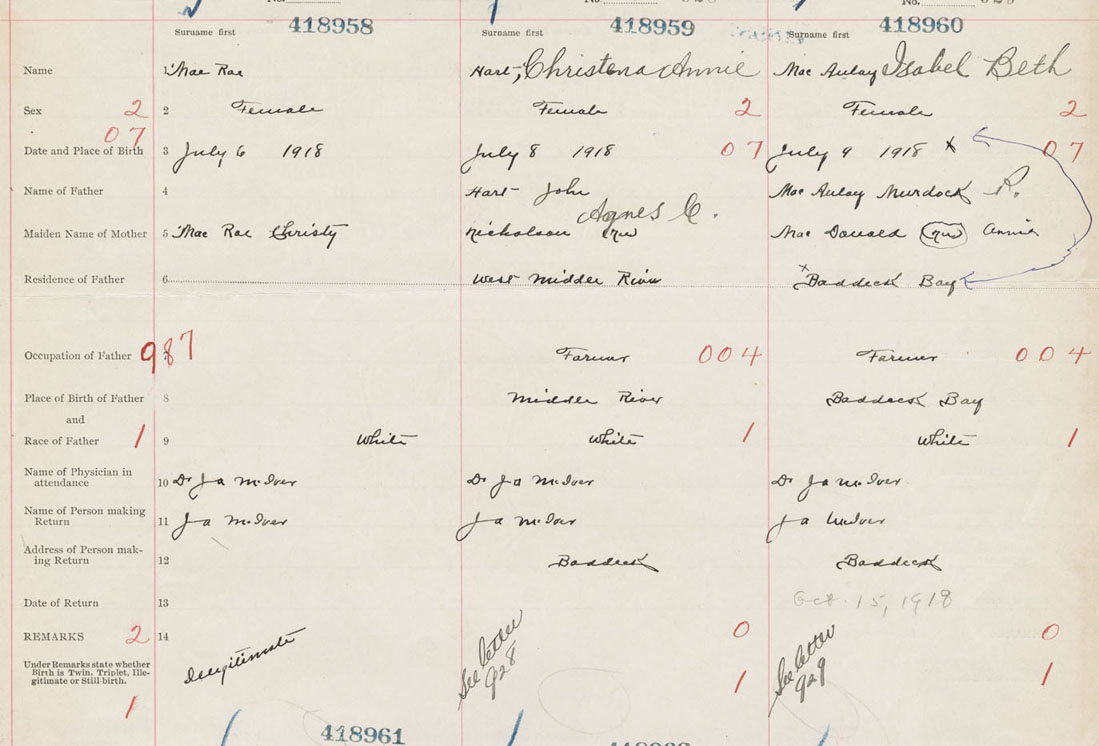 No. No. No.
418958 418959 418960
Surname first Surname first Surname first
Name 1 Mac Rae Hart, Christena Annie Mac Aulay Isabel Beth
Sex 2 2 Female Female 2 Female 2
07
Date and Place of Birth 3 July 6 1918 July 8 1918 07 July 9 1918 x 07
Name of Father 4 Hart John Mac Aulay Murdock R.
Agnes C.
Maiden Name of Mother 5 Mac Rae Christy Nicholson Mac Donald Annie
Residence of Father 6 West Middle River x Baddeck Bay
Occupation of Father 987 Farmer 004 Farmer 004
Place of Birth of Father 8 Middle River Baddeck Bay
and
Race of Father 1 9 White White 1 White 1
Name of Physician in
attendance 10 Dr J A McIver Dr J A McIver Dr J A McIver
Name of Person making
Return 11 J A McIver J A McIver J A McIver
Address of Person mak-
ing Return 12 Baddeck Baddeck
Date of Return 13 Oct. 15, 1918
REMARKS 2 14 Illegitimate See letter 928 0 See letter 929 0
Under Remarks state whether
Birth is Twin, Triplet, Ille-
gitimate or Still-birth. 1 1
1
418961